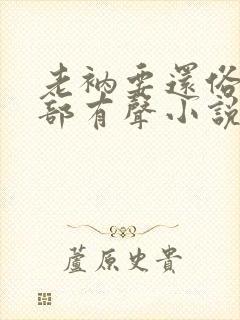 老衲要還俗
部有聲小說
蘆原史貴